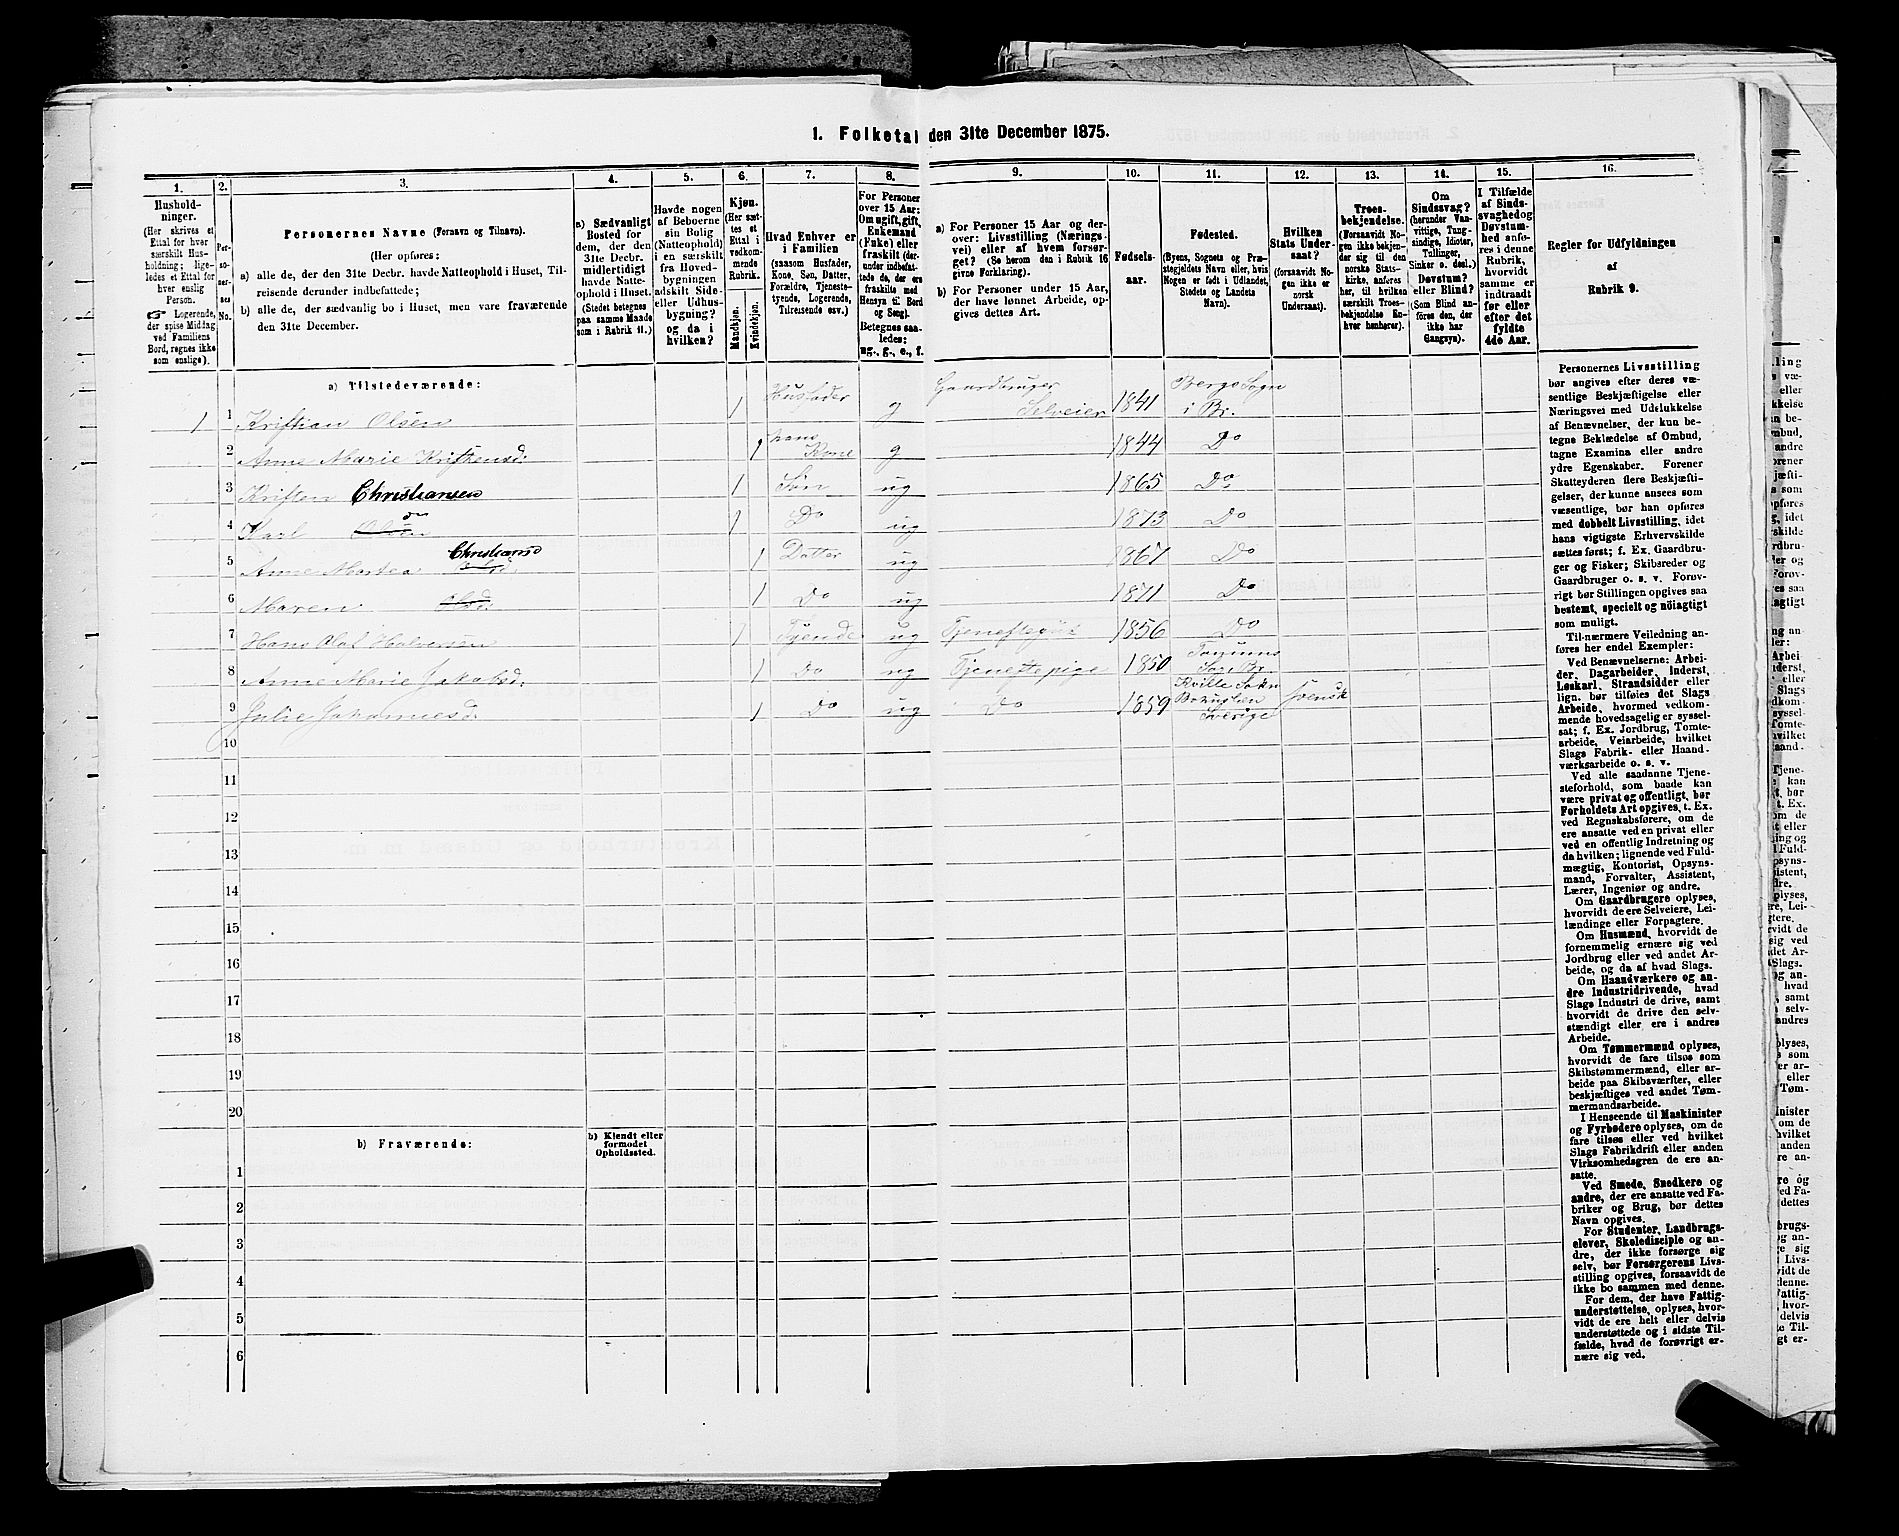 1. Folketal den 31te December 1875.
1.
Hushold-
ninger.
(Her skrives et
Ettal for hver
særskilt Hus-
holdning; lige-
ledes et Ettal for
hver enslig
Person.
☞ Logerende,
der spise Middag
ved Familiens
Bord, regnes ikke
som enslige).
2.
Per-
so-
ner-
nes
No.
3.
Personernes Navne (Fornavn og Tilnavn).
(Her opføres:
a) alle de, der den 31te Decbr. havde Natteophold i Huset, Til-
reisende derunder indbefattede;
b) alle de, der sædvanlig bo i Huset, men vare fraværende
den 31te December.
4.
a) Sædvanligt
Bosted for
dem, der den
31te Decbr.
midlertidigt
havde Natte-
ophold i Huset.
(Stedet betegnes
paa samme Maade
som i Rubrik 11.)
5.
Havde nogen
af Beboerne
sin Bolig
(Natteophold)
i en særskilt
fra Hoved-
bygningen
adskilt Side-
eller Udhus-
bygning?
og da i
hvilken?
6.
Kjøn.
(Her sæt-
tes et
Ettal i
vedkom-
mende
Rubrik.
Mandkjøn.
Kvindekjøn.
7.
Hvad Enhver er
i Familien
(saasom Husfader,
Kone, Søn, Datter,
Forældre, Tjeneste-
tyende, Logerende,
Tilreisende osv.)
8.
For Personer
over 15 Aar:
Om ugift, gift,
Enkemand
(Enke) eller
fraskilt (der-
under indbefat-
tede de, der ere
fraskilte med
Hensyn til Bord
og Seng).
Betegnes saa-
ledes:
ug., g., e., f.
9.
a) For Personer 15 Aar og der-
over: Livsstilling (Nærings-
vei) eller af hvem forsør-
get? (Se herom den i Rubrik 16
givne Forklaring).
b) For Personer under 15 Aar,
der have lønnet Arbeide, op-
gives dettes Art.
10.
Fødsels-
aar.
11.
Fødested.
(Byens, Sognets og Præ-
stegjeldets Navn eller, hvis
Nogen er født i Udlandet,
Stedets og Landets
Navn).
12.
Hvilken
Stats Under-
saat?
(forsaavidt No-
gen ikke er
norsk
Undersaat).
13.
Troes-
bekjendelse.
(Forsaavidt No-
gen ikke bekjen-
der sig til den
norske Stats-
kirke, anføres
her, til hvilken
særskilt Troes-
bekjendelse En-
hver henhører).
14.
Om
Sindssvag?
(herunder Van-
vittige, Tung-
sindige, Idioter,
Tullinger,
Sinker o. desl.)
Døvstum?
eller Blind?
(Som Blind an-
føres den, der
ikke har
Gangsyn).
15.
I Tilfælde
af Sinds-
svaghed og
Døvstum-
hed anfø-
res i denne
Rubrik,
hvorvidt
samme er
indtraadt
før eller
efter det
fyldte
4de Aar.
16.
Regler for Udfyldningen
af
Rubrik 9.
a) Tilstedeværende:
1 1 Kristian Olsen 1 Husfader g Gaardbruger Selveier 1841 Bergs Sogn i Br.
2 Anne Marie Kristensd: 1 hans Kone g 1844 Do
3 Kristen Christiansen 1 Søn ug 1865 Do
4 Karl Olsen do 1 Do ug 1873 Do
5 Anne Martea Christiansd 1 Datter ug 1867 Do
6 Maren Olsd: 1 Do ug 1871 Do
7 Hans Olaf Halvorsen 1 Tjende ug Tjenestegut 1856 Do
8 Anne Marie Jakobsd: 1 Do ug Tjenestepige 1850
9 Julie Johannesd: 1 Do ug Do 1859 Kville Sokn Bohuslen Sverige Svensk
10
11
12
13
14
15
16
17
18
19
20
b) Fraværende:
b) Kjendt eller
formodet
Opholdssted.
1
2
3
4
5
6
Personernes Livsstilling
bør angives efter deres væ-
sentlige Beskjæftigelse eller
Næringsvei med Udelukkelse
af Benævnelser, der kun be-
tegne Beklædelse af Ombud,
tagne Examina eller andre
ydre Egenskaber. Forener
Skatteyderen flere Beskjæfti-
gelser, der kunne ansees som
væsentlige, bør han opføres
med dobbelt Livsstilling, idet
hans vigtigste Erhvervskilde
sættes først; f. Ex. Gaardbru-
ger og Fisker; Skibsreder og
Gaardbruger o. s. v. Forøv-
rigt bør Stillingen opgives saa
bestemt, specielt og nöiagtigt
som muligt.
Til nærmere Veiledning an-
føres her endel Exempler:
Ved Benævnelserne: Arbei-
der, Dagarbeider, Inderst,
Løskarl, Strandsidder eller
lign. bør tilføies det Slags
Arbeide, hvormed vedkom-
mende hovedsagelig er syssel-
sat; f. Ex. Jordbrug, Tomte-
arbeide, Veiarbeide, hvilket
Slags Fabrik- eller Haand-
værksarbeide o. s. v.
Ved alle saadanne Tjene-
steforhold, som baade kan
være privat og offentligt, bør
Forholdets Art opgives, t. Ex.
ved Regnskabsførere, om de
ere ansatte ved en privat eller
ved en offentlig Indretning og
da hvilken; lignende ved Fuld-
mægtig, Kontorist, Opsyns-
mand, Forvalter, Assistent,
Lærer, Ingeniør og andre.
Om Gaardbrugere oplyses,
hvorvidt de ere Selveiere, Lei-
lændinge eller Forpagtere.
Om Husmænd, hvorvidt de
fornemmelig ernære sig ved
Jordbrug eller ved andet Ar-
beide, og da af hvad Slags.
Om Haandværkere og an-
dre Industridrivende, hvad
Slags Industri de drive, samt
hvorvidt de drive den selv-
stændigt eller ere i andres
Arbeide.
Om Tømmermænd oplyses,
hvorvidt de fare tilsøs som
Skibstømmermænd, eller ar-
beide paa Skibsværfter, eller
beskjæftiges ved andet Tøm-
mermandsarbeide.
I Henseende til Maskinister
og Fyrbødere oplyses, om de
fare tilsøs eller ved hvilket
Slags Fabrikdrift eller anden
Virksomhedsgren de ere an-
satte.
Ved Smede, Snedkere og
andre, der ere ansatte ved Fa-
briker og Brug, bør dettes
Navn opgives.
For Studenter, Landbrugs-
elever, Skoledisciple og an-
dre, der ikke forsørge sig
selv, bør Forsørgerens Livs-
stilling opgives, forsaavidt de
ikke bo sammen med denne.
For dem, der have Fattig-
understøttelse, oplyses, hvor-
vidt de ere helt eller delvis
understøttede og i sidste Til-
fælde, hvad de forøvrigt er-
nære sig ved.